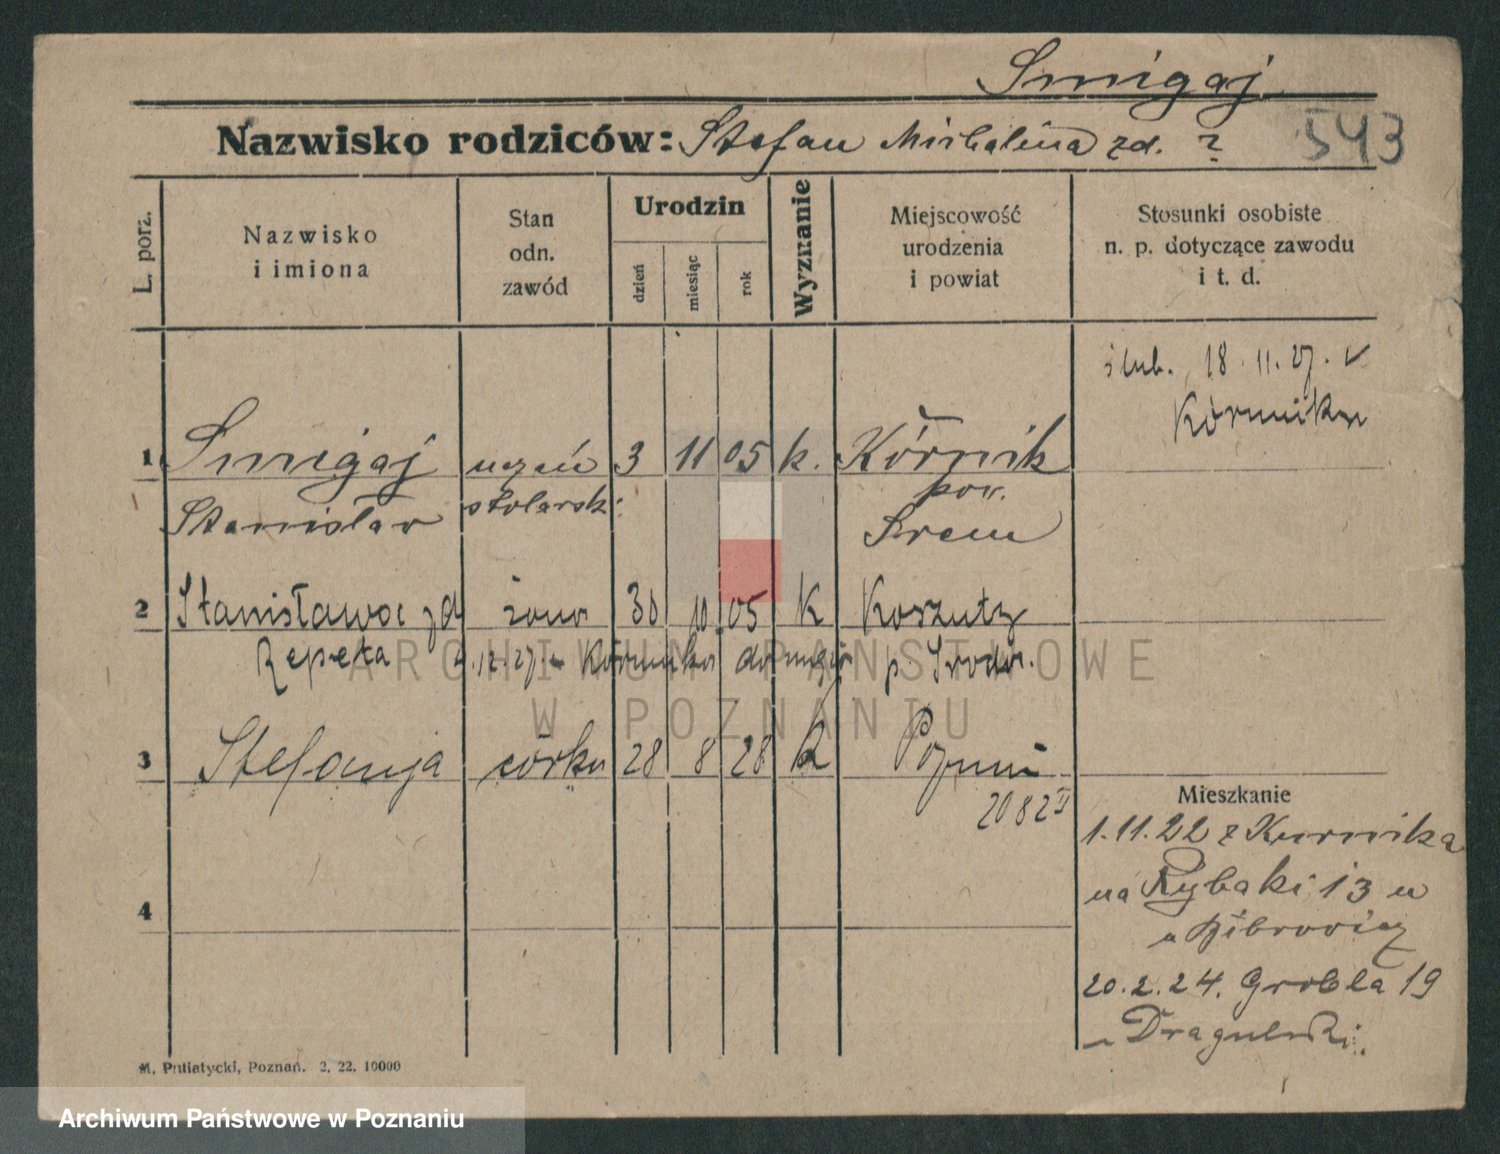 Smigaj
Nazwisko rodziców: Stefan Michalina zd. ?
543
L. porz.
Nazwisko
i imiona
Stan
odn.
zawód
Urodzin
dzień
miesiąc
rok
Wyznanie
Miejscowość
urodzenia
i powiat
Stosunki osobiste
n. p. dotyczące zawodu
i t. d.
ślub. 18.11.27. v
Kórniku
1 Smigaj uczeń 3 11 05 k. Kórnik
Stanisław stolarski pow.
Srem
2 Stanisława zd żona 30 10 05 K Koszuty
Rzepeta 12.27 z Kórnika p. Środa.
3 Stefanja córka 28 8 28 k Poznań
2082 II
4
Mieszkanie
1.11.22 z Kurnika
na Rybaki 13 u
20.2.24. Grobla 19
ARCHIWUM PAŃSTWOWE
W POZNANIU
M. Putiatycki, Poznań. 2. 22. 10000
Archiwum Państwowe w Poznaniu